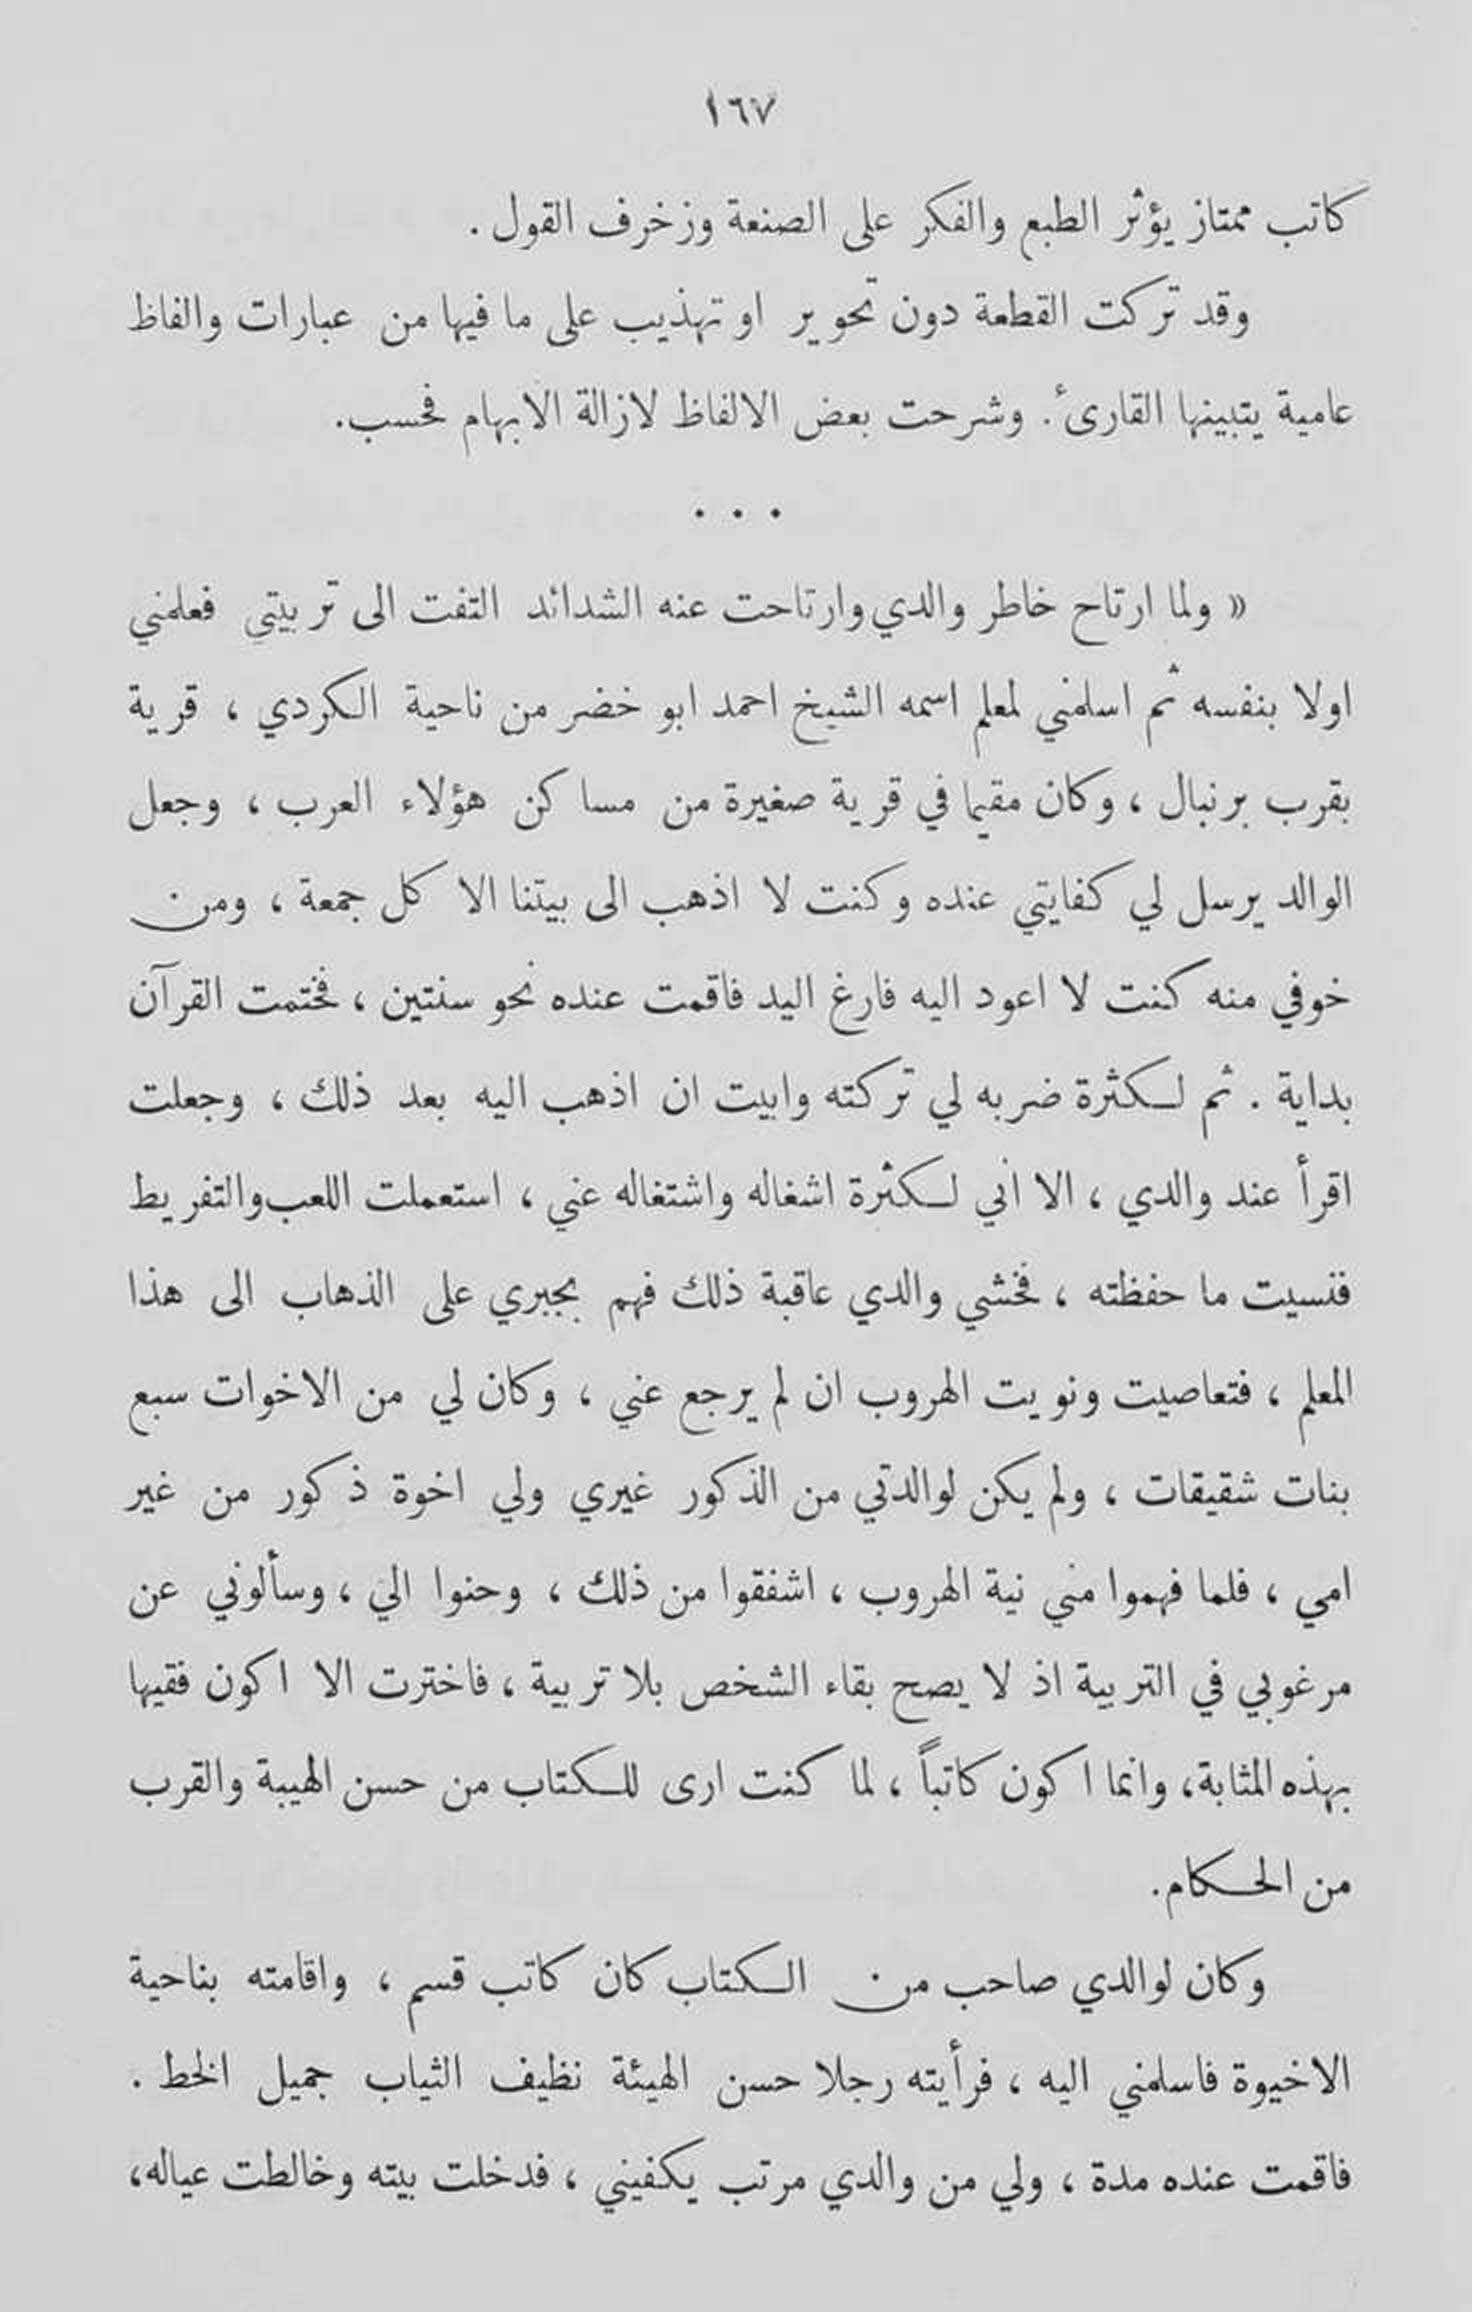 ١٦٧
كاتب ممتاز يؤثر الطبع والفكر على الصنعة وزخرف القول .
وقد تركت القطعة دون تحوير او تهذيب على ما فيها من عبارات والفاظ
عامية يتبينها القارىء . وشرحت بعض الالفاظ لازالة الابهام فحسب.
. . .
« ولما ارتاح خاطر والدي وارتاحت عنه الشدائد التفت الى تربيتي فعلمني
اولا بنفسه ثم اسلمني لمعلم اسمه الشيخ احمد ابو خضر من ناحية الكردي ، قرية
بقرب برنبال ، وكان مقيما في قرية صغيرة من مساكن هؤلاء العرب ، وجعل
الوالد يرسل لي كفايتي عنده وكنت لا اذهب الى بيتنا الا كل جمعة ، ومن
خوفي منه كنت لا اعود اليه فارغ اليد فاقمت عنده نحو سنتين ، فختمت القرآن
بداية . ثم لكثرة ضربه لي تركته وابيت ان اذهب اليه بعد ذلك ، وجعلت
اقرأ عند والدي ، الا اني لكثرة اشغاله واشتغاله عني ، استعملت اللعب والتفريط
فنسيت ما حفظته ، فخشي والدي عاقبة ذلك فهم بجبري على الذهاب الى هذا
المعلم ، فتعاصيت ونويت الهروب ان لم يرجع عني ، وكان لي من الاخوات سبع
بنات شقيقات ، ولم يكن لوالدتي من الذكور غيري ولي اخوة ذكور من غير
امي ، فلما فهموا مني نية الهروب ، اشفقوا من ذلك ، وحنوا الي ، وسألوني عن
مرغوبي في التربية اذ لا يصح بقاء الشخص بلا تربية ، فاخترت الا اكون فقيها
بهذه المثابة، وانما اكون كاتباً ، لما كنت ارى للكتاب من حسن الهيبة والقرب
من الحكام.
وكان لوالدي صاحب من الكتاب كان كاتب قسم ، واقامته بناحية
الاخيوة فاسلمني اليه ، فرأيته رجلا حسن الهيئة نظيف الثياب جميل الخط .
فاقمت عنده مدة ، ولي من والدي مرتب يكفيني ، فدخلت بيته وخالطت عياله،